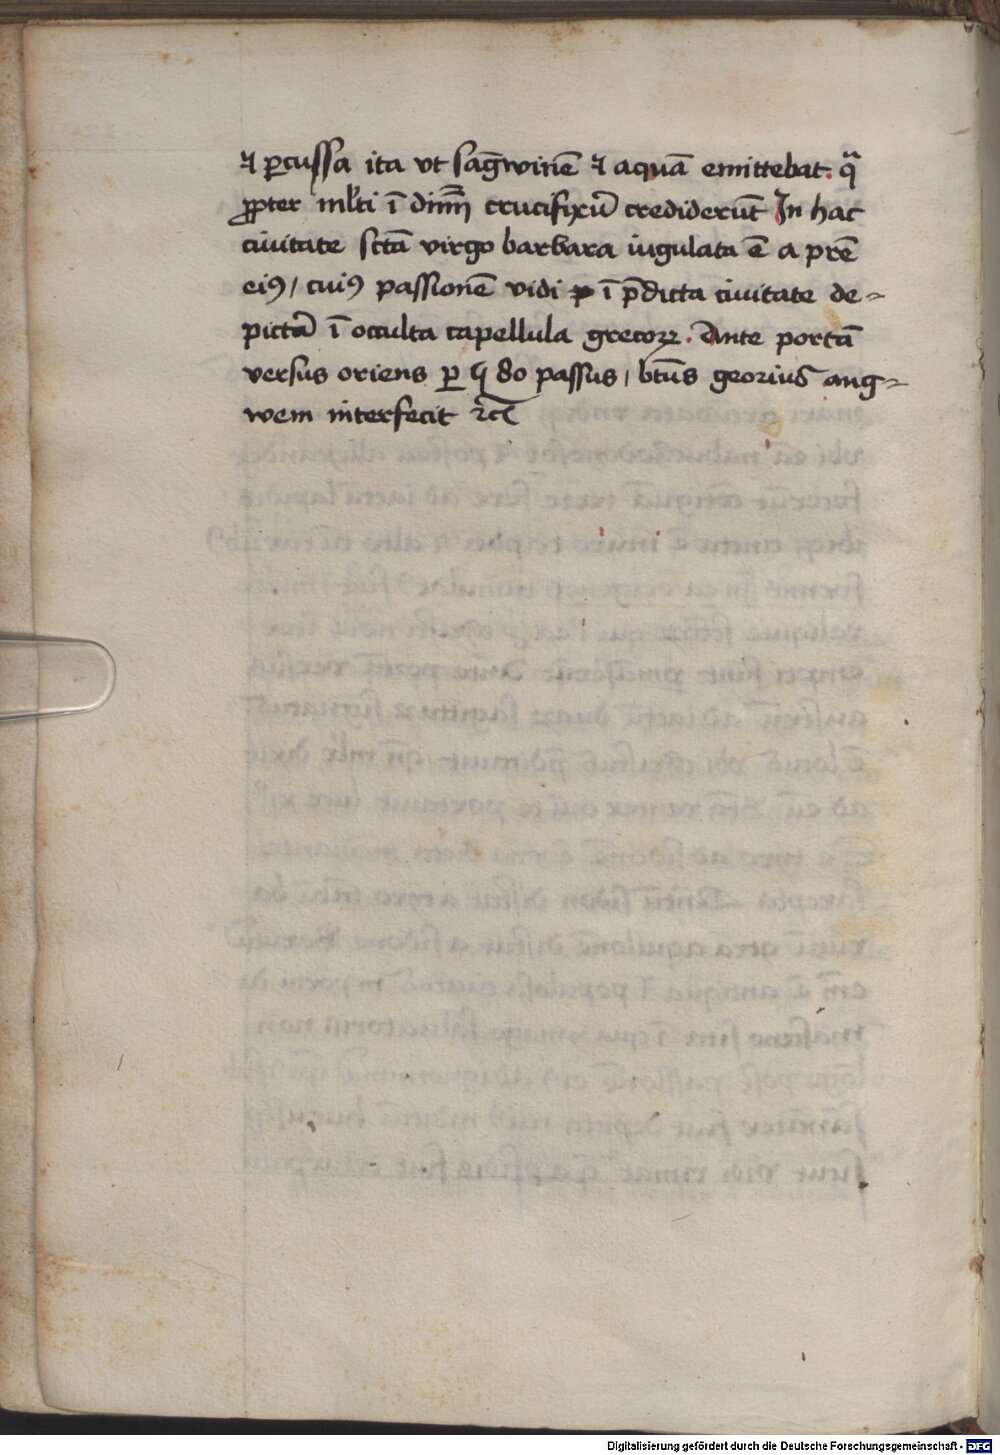 ⁊ ꝑcussa ita vt sāgwinē ⁊ aquā emittebat. q̄
ꝓpter ml'ti ī dīnm̄ crucifixū crediderūt In hac
ciuitate sctā virgo barbara iugulata ē a pr̄e
eiꝰ / cuiꝰ passionē vidi ī p̄dicta ciuitate de-
pictā ī occulta capellula grecoꝝ. Ante portā
versus oriens ꝑ 80 passus / btūs georius ang-
wem interfecit ⁊c̄
Digitalisierung gefördert durch die Deutsche Forschungsgemeinschaft - DFG